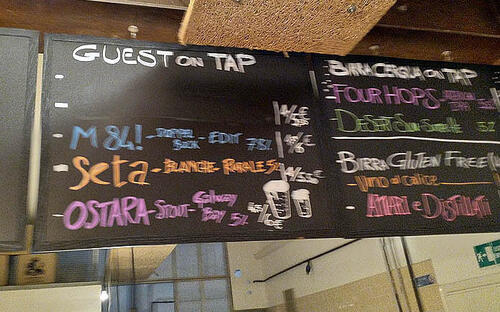 GUEST ON TAP
M84! - DOPPEL BOCK - EDIT 7,8%
Seta - BLANCHE - RURALE 5%
OSTARA - STOUT - Galway Bay 5%
BIRRA CERQUA ON TAP
FOUR HOPS -
DESERT SUN
BIRRA GLUTEN FREE
Vino al calice
AMARI e DISTILLATI